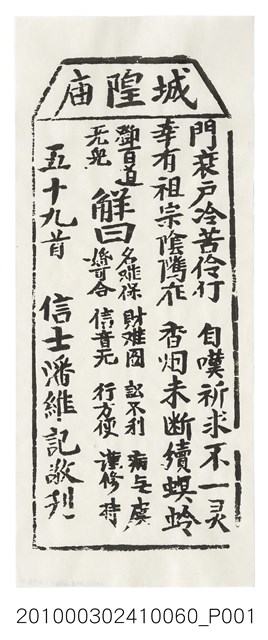 城隍庙
門衰戶冷苦伶仃 自嘆祈求不一灵
幸有祖宗陰隲在 香烟未断續螟蛉
鄧百道
无兒
解曰
名难保 財难图 訟不利 病无虞
婚可合 信音无 行方便 謹修持
五十九首 信士潘維記敬刋
201000302410060_P001